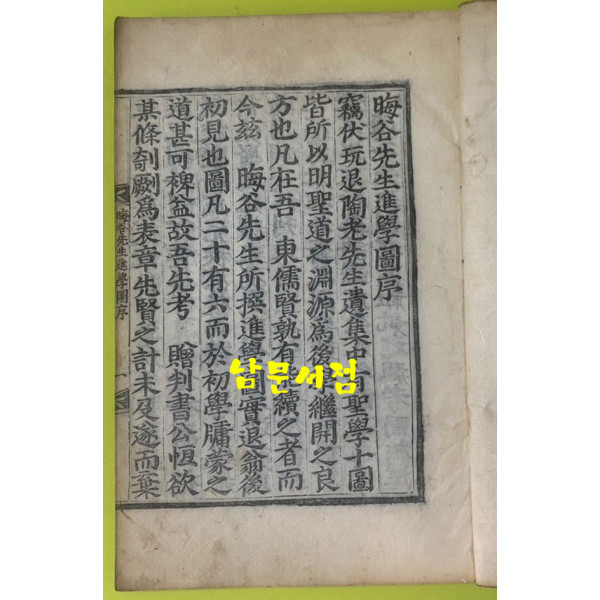 晦谷先生進學圖序
竊伏玩退陶老先生遺集中有聖學十圖
皆所以明聖道之淵源為後學繼開之良
方也凡在吾 東儒賢孰有能續之者而
今玆 晦谷先生所撰進學圖實退翁後
初見也圖凡二十有六而於初學牖蒙之
道甚可裨益故吾先考 贈判書公恆欲
某條剞劂為表章先賢之計未及遂而棄
晦谷先生進學圖序
一
남문서점